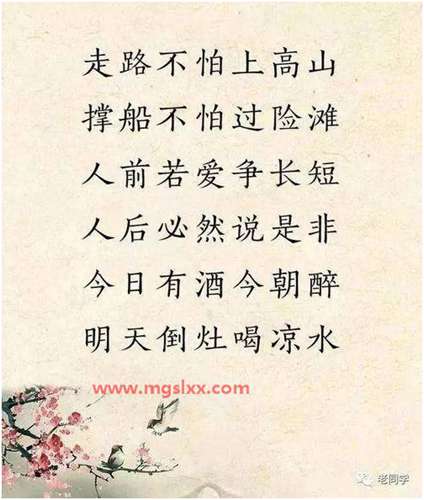 走路不怕上高山
撑船不怕过险滩
人前若爱争长短
人后必然说是非
今日有酒今朝醉
明天倒灶喝凉水
www.mgslxx.com
老同学